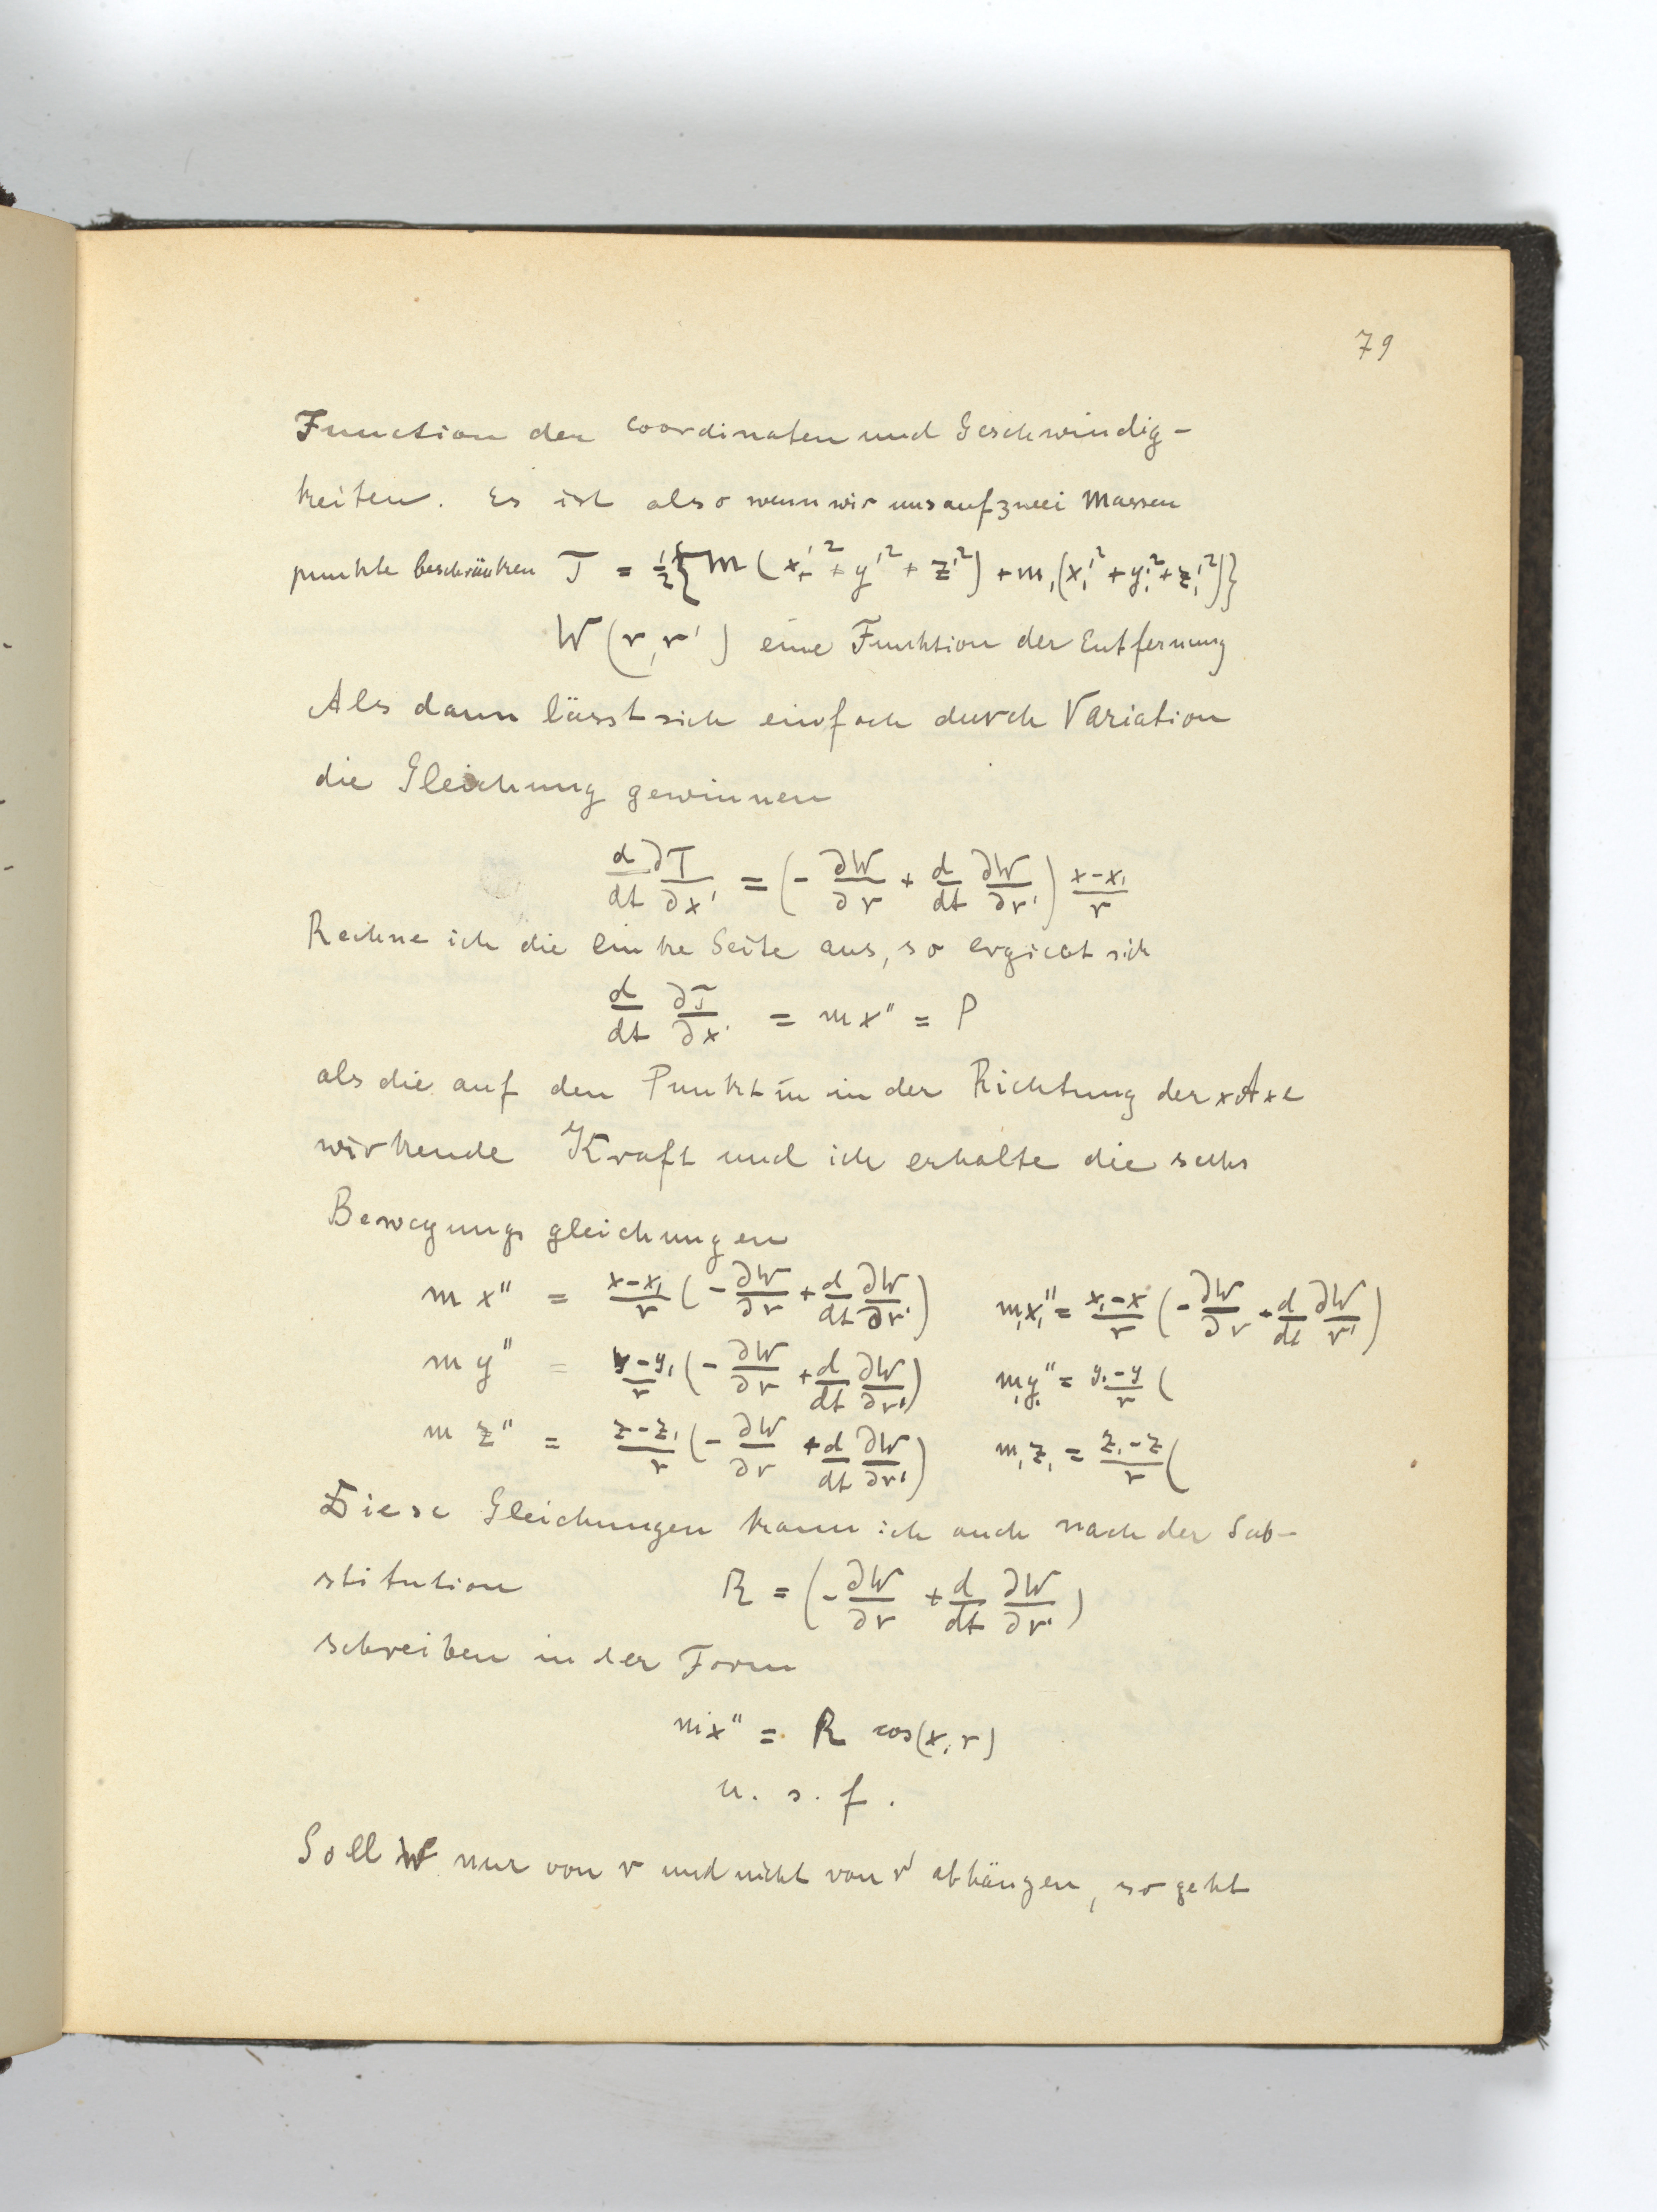 79
Function der Coordinaten und Geschwindig-
keiten. Es ist also wenn wir uns auf zwei Massen
punkte beschränken T = ½{m(x'² + y'² + z'²) + m₁(x₁'² + y₁'² + z₁'²)}
W(r, r') eine Funktion der Entfernung
Als dann lässt sich einfach durch Variation
die Gleichung gewinnen
d/dt ∂T/∂x' = (- ∂W/∂r + d/dt ∂W/∂r') x-x₁/r
Rechne ich die linke Seite aus, so ergiebt sich
d/dt ∂T/∂x' = mx'' = P
als die auf den Punkt m in der Richtung der x Axe
wirkende Kraft und ich erhalte die sechs
Bewegungsgleichungen
m x'' = x-x₁/r (- ∂W/∂r + d/dt ∂W/∂r') m₁x₁'' = x₁-x/r (- ∂W/∂r + d/dt ∂W/r')
m y'' = y-y₁/r (- ∂W/∂r + d/dt ∂W/∂r') m₁y₁'' = y₁-y/r (
m z'' = z-z₁/r (- ∂W/∂r + d/dt ∂W/∂r') m₁z₁ = z₁-z/r (
Diese Gleichungen kann ich auch nach der Sub-
stitution R = (- ∂W/∂r + d/dt ∂W/∂r')
schreiben in der Form
mx'' = R cos(x, r)
u. s. f.
Soll W nur von r und nicht von r' abhängen, so geht